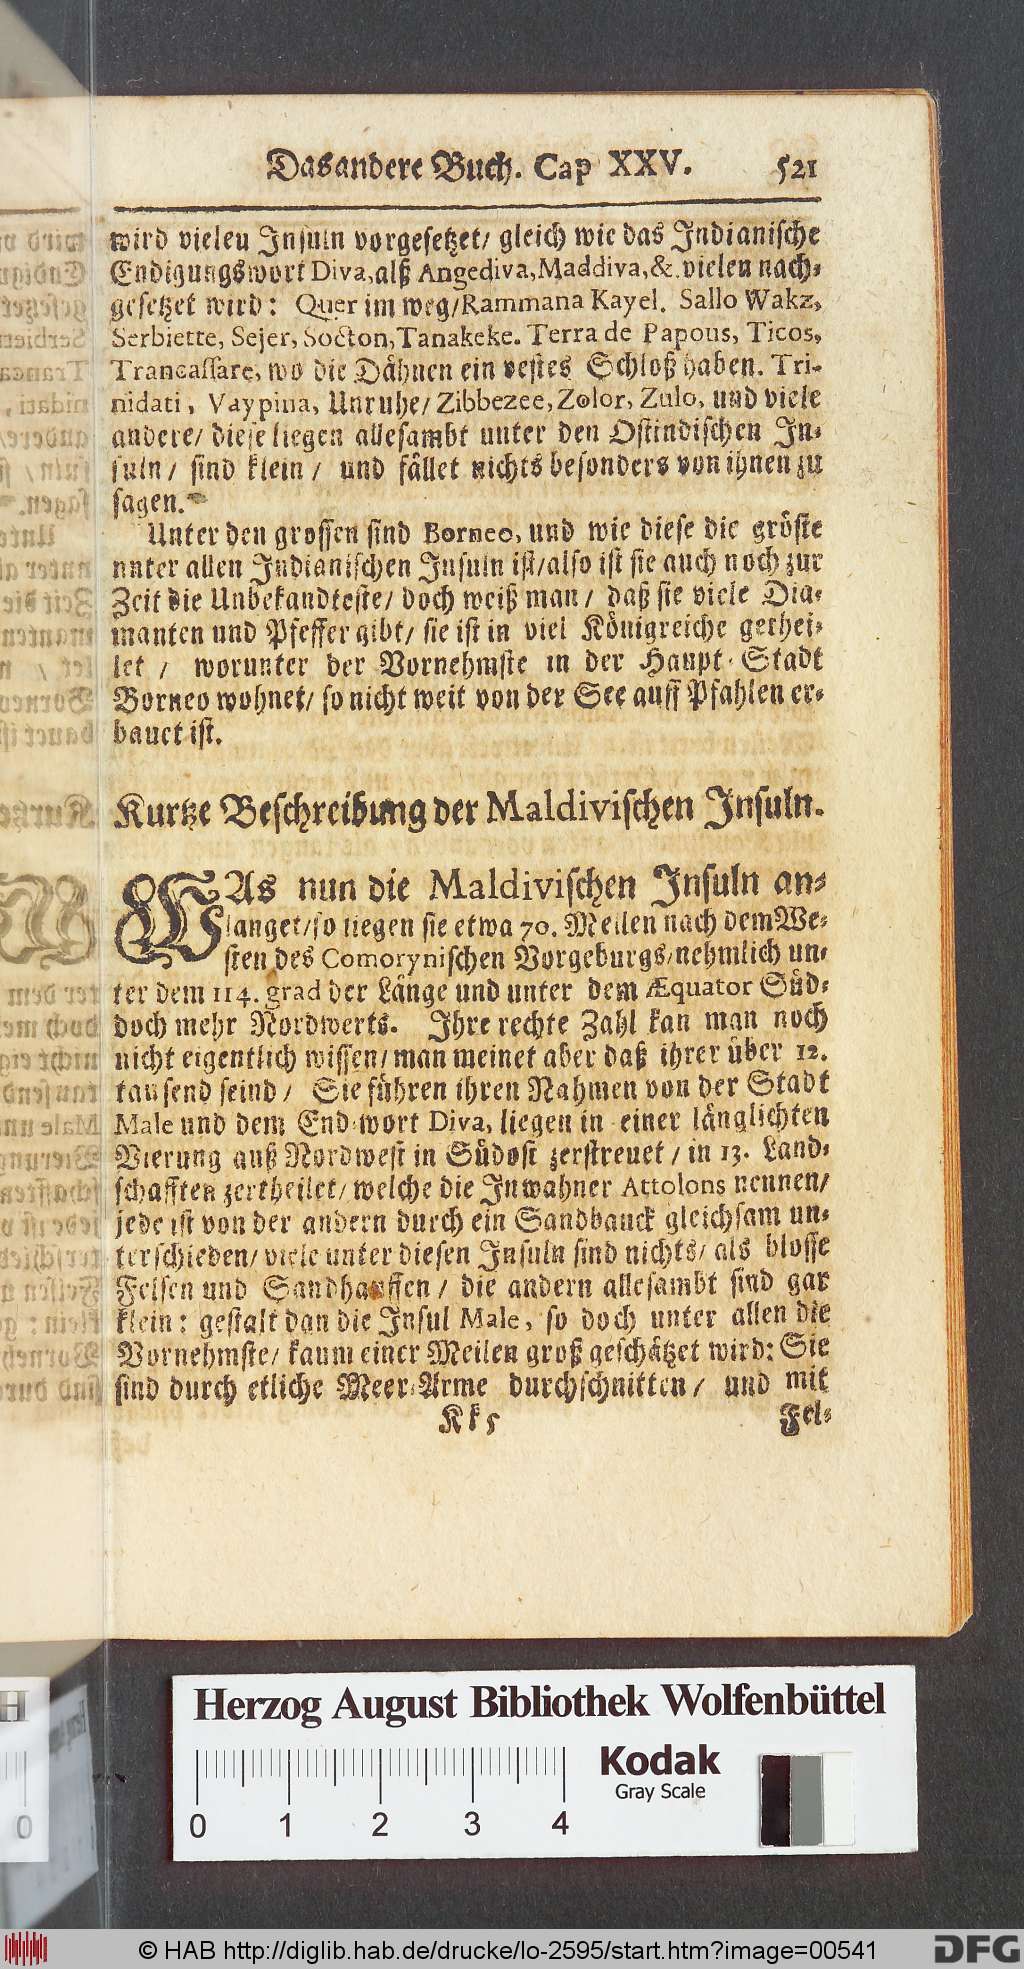 Das andere Buch. Cap XXV. 521
wird vielen Insuln vorgesetzet/ gleich wie das Indianische
Endigungswort Diva, alß Angediva, Maddiva, &. vielen nach-
gesetzet wird: Quer im weg/ Rammana Kayel. Sallo Wakz,
Serbiette, Sejer, Socton, Tanakeke. Terra de Papous, Ticos,
Trancassare, wo die Dähnen ein vestes Schloß haben. Tri-
nidati, Vaypina, Unruhe/ Zibbezee, Zolor, Zulo, und viele
andere/ diese liegen allesambt unter den Ostindischen In-
suln/ sind klein/ und fället nichts besonders von ihnen zu
sagen.
Unter den grossen sind Borneo, und wie diese die gröste
unter allen Indianischen Insuln ist/ also ist sie auch noch zur
Zeit die Unbekandteste/ doch weiß man/ daß sie viele Dia-
manten und Pfeffer gibt/ sie ist in viel Königreiche gethei-
let / worunter der Vornehmste in der Haupt-Stadt
Borneo wohnet/ so nicht weit von der See auff Pfahlen er-
bauet ist.
Kurtze Beschreibung der Maldivischen Insuln.
WAs nun die Maldivischen Insuln an-
langet/ so liegen sie etwa 70. Meilen nach dem We-
sten des Comorynischen Vorgeburgs/ nehmlich un-
ter dem 114. grad der Länge und unter dem Æquator Süd-
doch mehr Nordwerts. Ihre rechte Zahl kan man noch
nicht eigentlich wissen/ man meinet aber daß ihrer über 12.
tausend seind / Sie führen ihren Nahmen von der Stadt
Male und dem End-wort Diva, liegen in einer länglichten
Vierung auß Nordwest in Südost zerstreuet / in 13. Land-
schafften zertheilet/ welche die Inwahner Attolons nennen/
jede ist von der andern durch ein Sandbanck gleichsam un-
terschieden/ viele unter diesen Insuln sind nichts/ als blosse
Felsen und Sandhauffen / die andern allesambt sind gar
klein: gestalt dan die Insul Male, so doch unter allen die
Vornehmste/ kaum einer Meilen groß geschätzet wird: Sie
sind durch etliche Meer-Arme durchschnitten/ und mit
Kk 5 Fel-
Herzog August Bibliothek Wolfenbüttel
Kodak
Gray Scale
0 1 2 3 4
© HAB http://diglib.hab.de/drucke/lo-2595/start.htm?image=00541
DFG